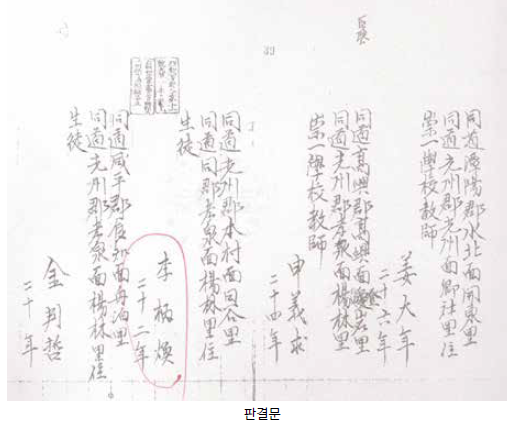 同道潭陽郡水北面開東里
同道光州郡光州面郷社里住
崇一學校教師
姜大年
二十六年
同道高興郡高興面岩里
同道光州郡孝泉面楊林里
崇一學校教師
申義求
二十四年
同道光州郡本村面日谷里
同道同郡孝泉面楊林里住
生徒
李柄煥
二十二年
同道咸平郡食知面舟浦里
同道光州郡孝泉面楊林里住
生徒
金判哲
二十年
판결문